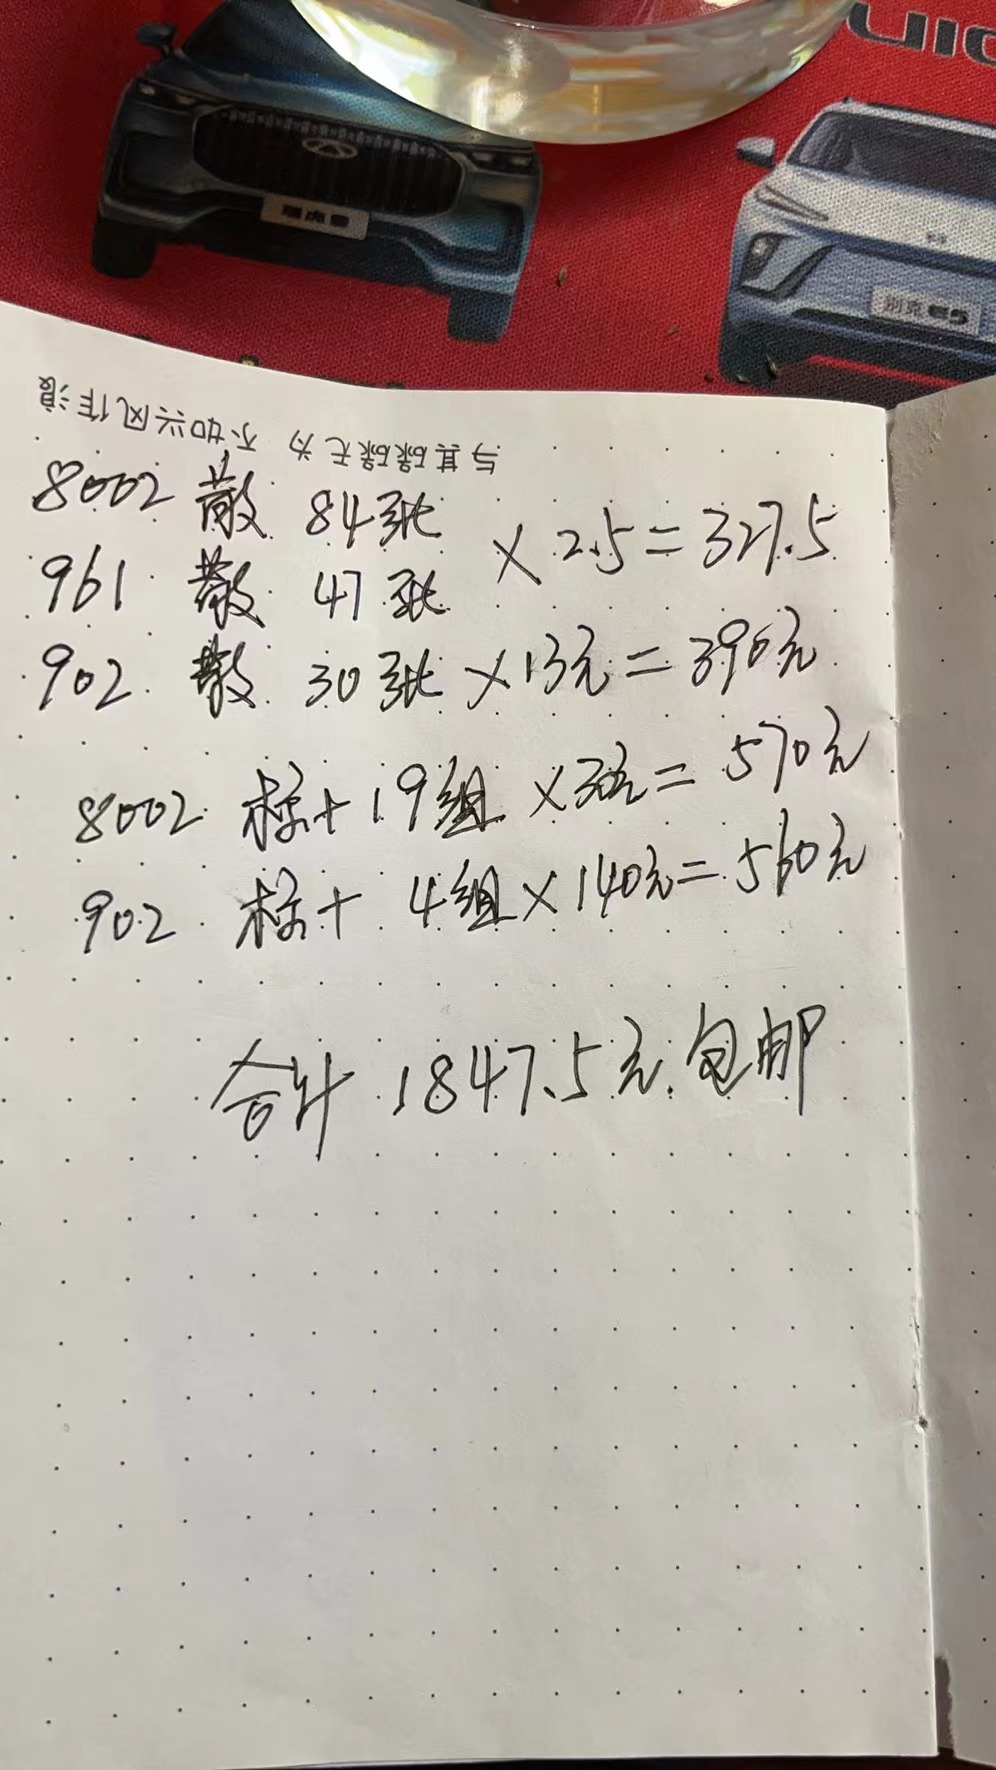 瑞虎9
别克 E5
与其碌碌无为 不如兴风作浪
8002 散 84张
961 散 47张 × 2.5 = 327.5
902 散 30张 × 13元 = 390元
8002 标+ 19组 × 30元 = 570元
902 标+ 4组 × 140元 = 560元
合计 1847.5元 包邮